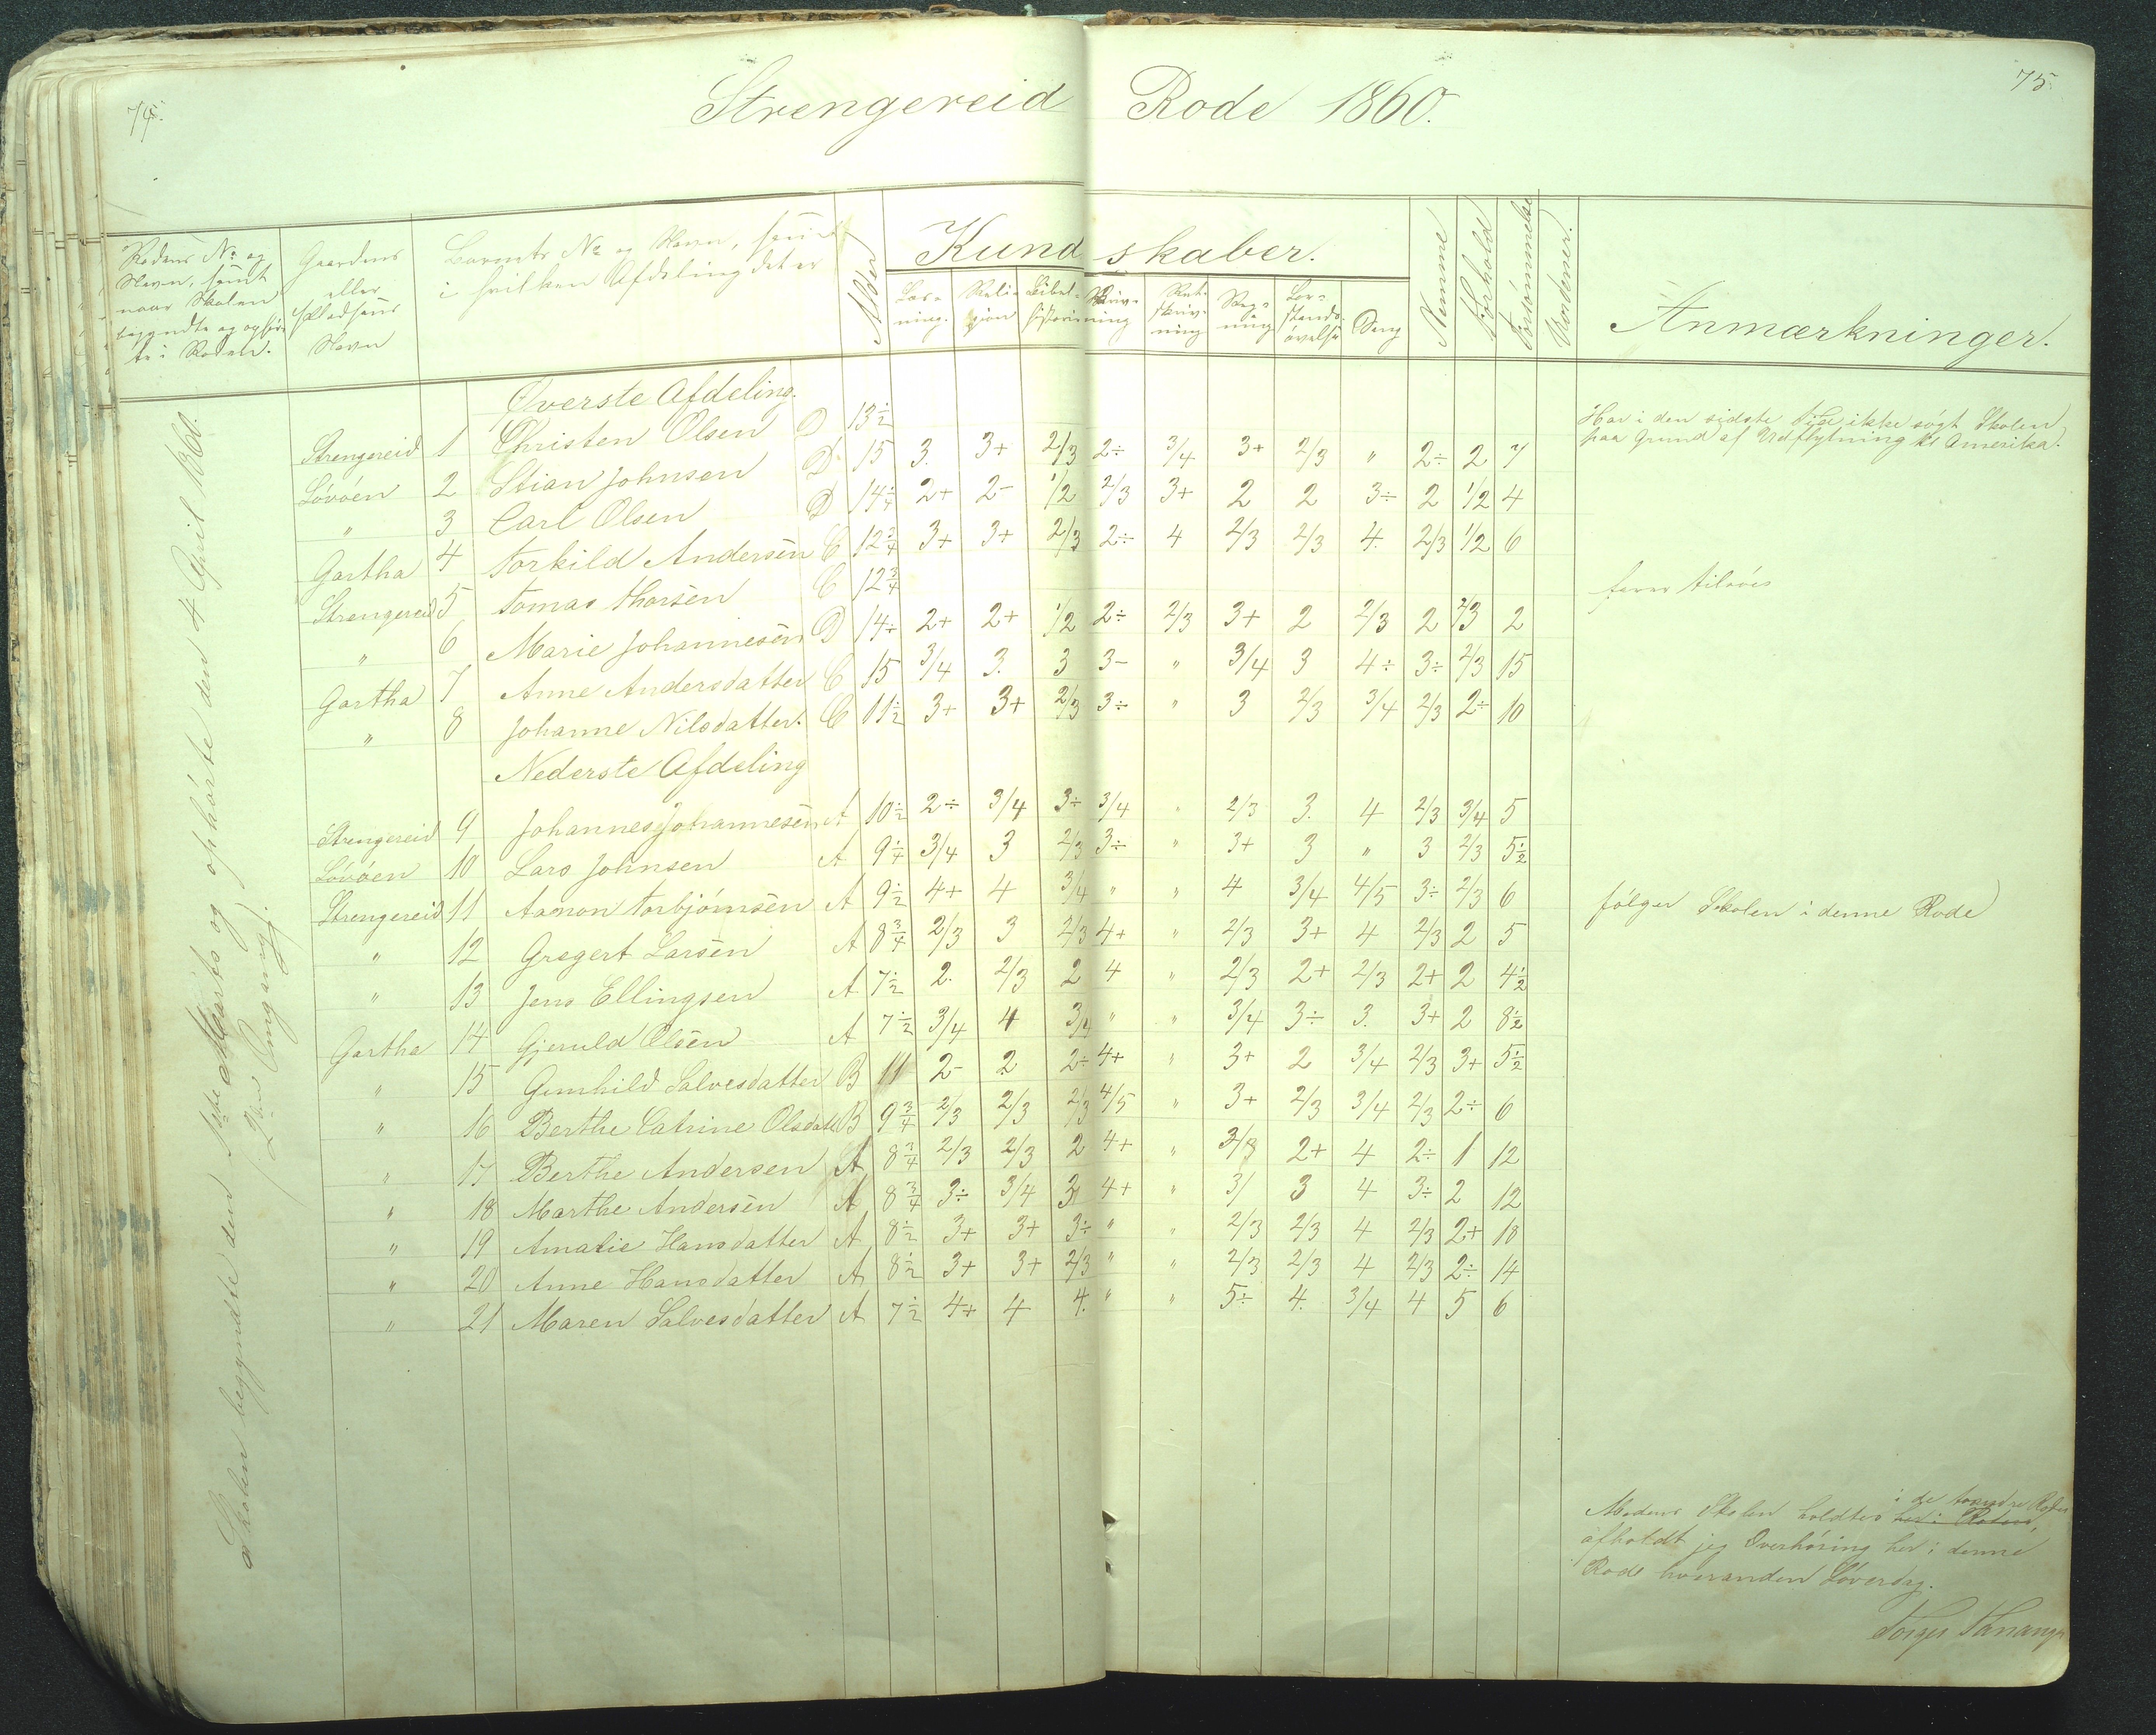 74.
75.
Strengereid Rode 1860.
Rodens No og Navn, samt naar Skolen begyndte og ophör- te i Roden.
Gaardens eller Pladsens Navn
Barnets No og Navn, samt i hvilken Afdeling det er
Alder
Kundskaber.
Læs- ning.
Reli- gion
Bibel- historie
Skriv- ning
Ret- skriv- ning
Reg- ning
For- stands- övelse
Sang
Nemme
Forhold
Forsömmelse
Moderner.
Anmærkninger.
Skolen begyndte den 1ste Marts og ophörte den 4 April 1860.
(2den Omgang).
Øverste Afdeling.
Strengereid 1 Christen Olsen D 13½
Har i den sidste Tid ikke sögt Skolen
paa Grund af Udflytning til Amerika.
Lövöen 2 Stian Johnsen D 15 3. 3+ 2/3 2÷ 3/4 3+ 2/3 " 2÷ 2 7
" 3 Carl Olsen D 14¼ 2+ 2- 1/2 2/3 3+ 2 2 3÷ 2 1/2 4
Gartha 4 Torkild Andersen C 12¾ 3+ 3+ 2/3 2÷ 4 2/3 2/3 4. 2/3 1/2 6
Strengereid 5 Tomas Thorsen C 12¾
farer tilsöes
" 6 Marie Johannesen D 14÷ 2+ 2+ 1/2 2÷ 2/3 3+ 2 2/3 2 2/3 2
Gartha 7 Anne Andersdatter C 15 3/4 3. 3 3- " 3/4 3 4÷ 3÷ 2/3 15
" 8 Johanne Nilsdatter. C 11½ 3+ 3+ 2/3 3÷ " 3 2/3 3/4 2/3 2÷ 10
Nederste Afdeling
Strengereid 9 Johannes Johannesen A 10½ 2÷ 3/4 3÷ 3/4 " 2/3 3. 4 2/3 3/4 5
Lövöen 10 Lars Johnsen A 9¼ 3/4 3 2/3 3÷ " 3+ 3 " 3 2/3 5½
Strengereid 11 Aamon Torbjörnsen A 9½ 4+ 4 3/4 " " 4 3/4 4/5 3÷ 2/3 6
fölger Skolen i denne Rode
" 12 Gregert Larsen A 8¾ 2/3 3 2/3 4+ " 2/3 3+ 4 2/3 2 5
" 13 Jens Ellingsen A 7½ 2. 2/3 2 4 " 2/3 2+ 2/3 2+ 2 4½
Gartha 14 Gjeruld Olsen A 7½ 3/4 4 3/4 " " 3/4 3÷ 3. 3+ 2 8½
" 15 Gunhild Salvesdatter B 11 2- 2 2÷ 4+ " 3+ 2 3/4 2/3 3+ 5½
" 16 Berthe Catrine Olsdatt B 9¾ 2/3 2/3 2/3 4/5 " 3+ 2/3 3/4 2/3 2÷ 6
" 17 Berthe Andersen A 8¾ 2/3 2/3 2 4+ " 2+ 4 2÷ 1 12
" 18 Marthe Andersen A 8¾ 3÷ 3/4 3 4+ " 3/ 3 4 3÷ 2 12
" 19 Amalie Hansdatter A 8½ 3+ 3+ 3÷ " " 2/3 2/3 4 2/3 2+ 18
" 20 Anne Hansdatter A 8½ 3+ 3+ 2/3 " " 2/3 2/3 4 2/3 2÷ 14
" 21 Maren Salvesdatter A 7½ 4+ 4 4. " " 5÷ 4. 3/4 4 5 6
i de
Medens Skolen holdtes her i Roden,
afholdt jeg Overhöring her i denne
Rode hveranden Löverdag.